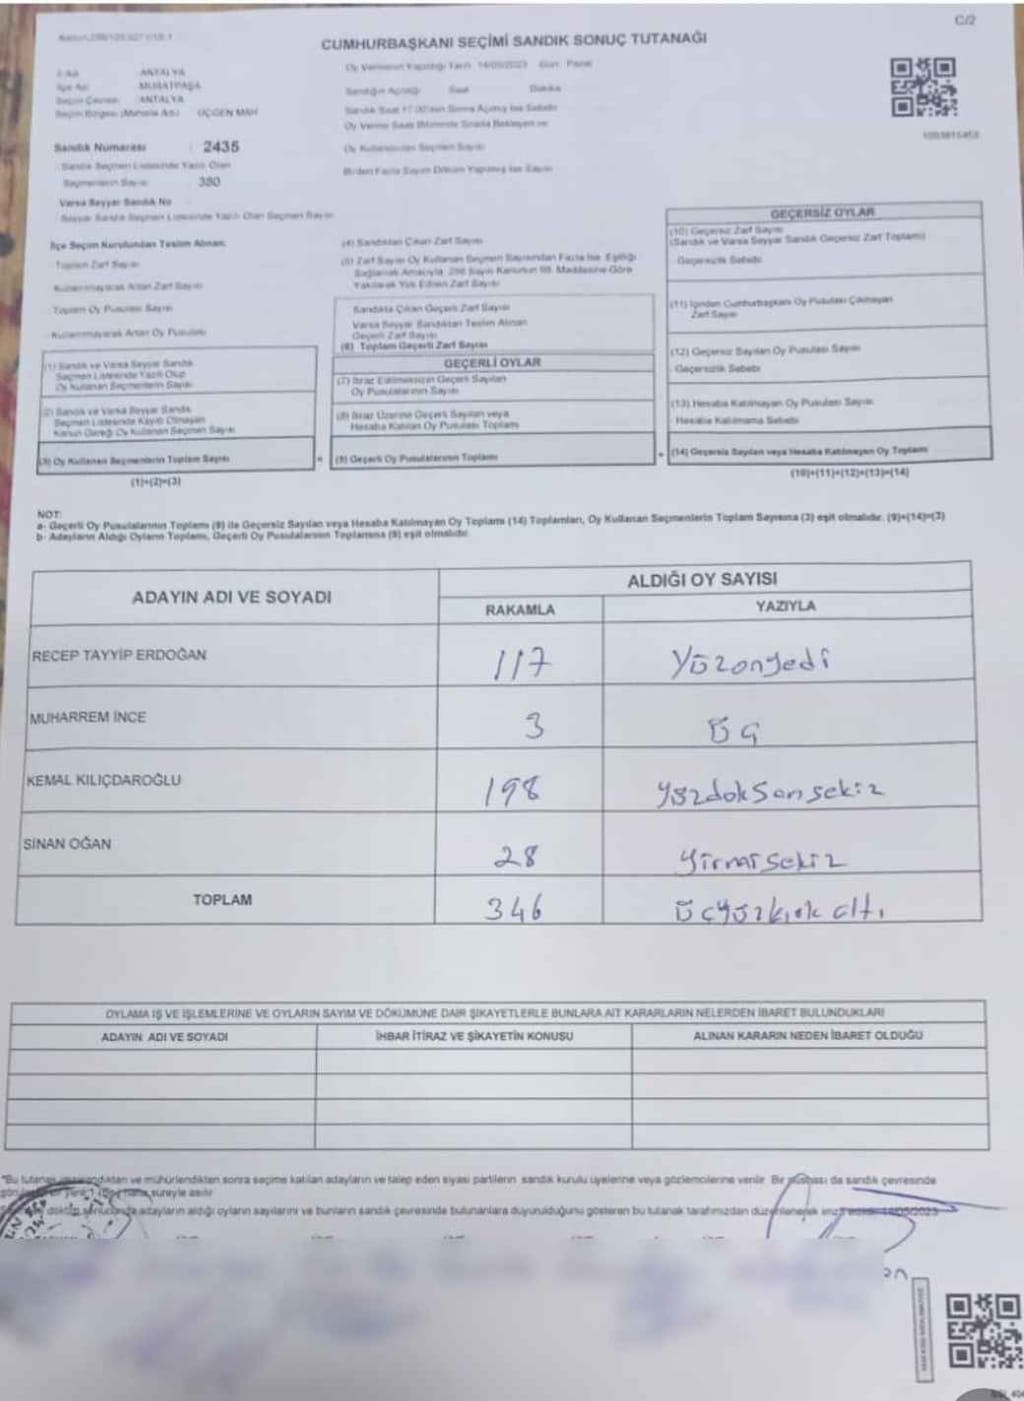 C/2
CUMHURBAŞKANI SEÇİMİ SANDIK SONUÇ TUTANAĞI
Oy Vermenin Yapıldığı Tarih 14/05/2023 Gün: Pazar
İl Adı ANTALYA
İlçe Adı MURATPAŞA
Seçim Çevresi ANTALYA
Seçim Bölgesi (Mahalle Adı) ÜÇGEN MAH
Sandığın Açıldığı Saat Dakika
Sandık Saat 17.00'den Sonra Açılmış İse Sebebi
Oy Verme Saati Bitiminde Sırada Bekleyen ve
Oy Kullandırılan Seçmen Sayısı
Birden Fazla Sayım Döküm Yapılmış İse Sayısı
Sandık Numarası : 2435
Sandık Seçmen Listesinde Yazılı Olan
Seçmenlerin Sayısı 380
Varsa Seyyar Sandık No
Seyyar Sandık Seçmen Listesinde Yazılı Olan Seçmen Sayısı
İlçe Seçim Kurulundan Teslim Alınan;
Toplam Zarf Sayısı
Kullanılmayarak Artan Zarf Sayısı
Toplam Oy Pusulası Sayısı
Kullanılmayarak Artan Oy Pusulası
(1) Sandık ve Varsa Seyyar Sandık
Seçmen Listesinde Yazılı Olup
Oy Kullanan Seçmenlerin Sayısı
(2) Sandık ve Varsa Seyyar Sandık
Seçmen Listesinde Kayıtlı Olmayan
Kanun Gereği Oy Kullanan Seçmen Sayısı
(3) Oy Kullanan Seçmenlerin Toplam Sayısı
(1)+(2)=(3)
(4) Sandıktan Çıkan Zarf Sayısı
(5) Zarf Sayısı Oy Kullanan Seçmen Sayısından Fazla İse, Eşitliği
Sağlamak Amacıyla, 298 Sayılı Kanunun 98. Maddesine Göre
Yakılarak Yok Edilen Zarf Sayısı
Sandıkta Çıkan Geçerli Zarf Sayısı
Varsa Seyyar Sandıktan Teslim Alınan
Geçerli Zarf Sayısı
(6) Toplam Geçerli Zarf Sayısı
GEÇERLİ OYLAR
(7) İtiraz Edilmeksizin Geçerli Sayılan
Oy Pusulalarının Sayısı
(8) İtiraz Üzerine Geçerli Sayılan veya
Hesaba Katılan Oy Pusulası Toplamı
(9) Geçerli Oy Pusulalarının Toplamı
GEÇERSİZ OYLAR
(10) Geçersiz Zarf Sayısı
(Sandık ve Varsa Seyyar Sandık Geçersiz Zarf Toplamı)
Geçersizlik Sebebi
(11) İçinden Cumhurbaşkanı Oy Pusulası Çıkmayan
Zarf Sayısı
(12) Geçersiz Sayılan Oy Pusulası Sayısı
Geçersizlik Sebebi
(13) Hesaba Katılmayan Oy Pusulası Sayısı
Hesaba Katılmama Sebebi
(14) Geçersiz Sayılan veya Hesaba Katılmayan Oy Toplamı
(10)+(11)+(12)+(13)=(14)
NOT:
a- Geçerli Oy Pusulalarının Toplamı (9) ile Geçersiz Sayılan veya Hesaba Katılmayan Oy Toplamı (14) Toplamları, Oy Kullanan Seçmenlerin Toplam Sayısına (3) eşit olmalıdır. (9)+(14)=(3)
b- Adayların Aldığı Oyların Toplamı, Geçerli Oy Pusulalarının Toplamına (9) eşit olmalıdır.
ADAYIN ADI VE SOYADI
ALDIĞI OY SAYISI
RAKAMLA YAZIYLA
RECEP TAYYİP ERDOĞAN 117 Yüzonyedi
MUHARREM İNCE 3 Üç
KEMAL KILIÇDAROĞLU 198 Yüzdoksansekiz
SİNAN OĞAN 28 Yirmisekiz
TOPLAM 346 üçyüzkırk altı
OYLAMA İŞ VE İŞLEMLERİNE VE OYLARIN SAYIM VE DÖKÜMÜNE DAİR ŞİKAYETLERLE BUNLARA AİT KARARLARIN NELERDEN İBARET BULUNDUKLARI
ADAYIN ADI VE SOYADI İHBAR İTİRAZ VE ŞİKAYETİN KONUSU ALINAN KARARIN NEDEN İBARET OLDUĞU
*Bu tutanak ve mühürlendikten sonra seçime katılan adayların ve talep eden siyasi partilerin sandık kurulu üyelerine veya gözlemcilerine verilir. Bir nüshası da sandık çevresinde
süreyle asılır
adayların aldığı oyların sayılarını ve bunların sandık çevresinde bulunanlara duyurulduğunu gösteren bu tutanak tarafımızdan düzenlenerek